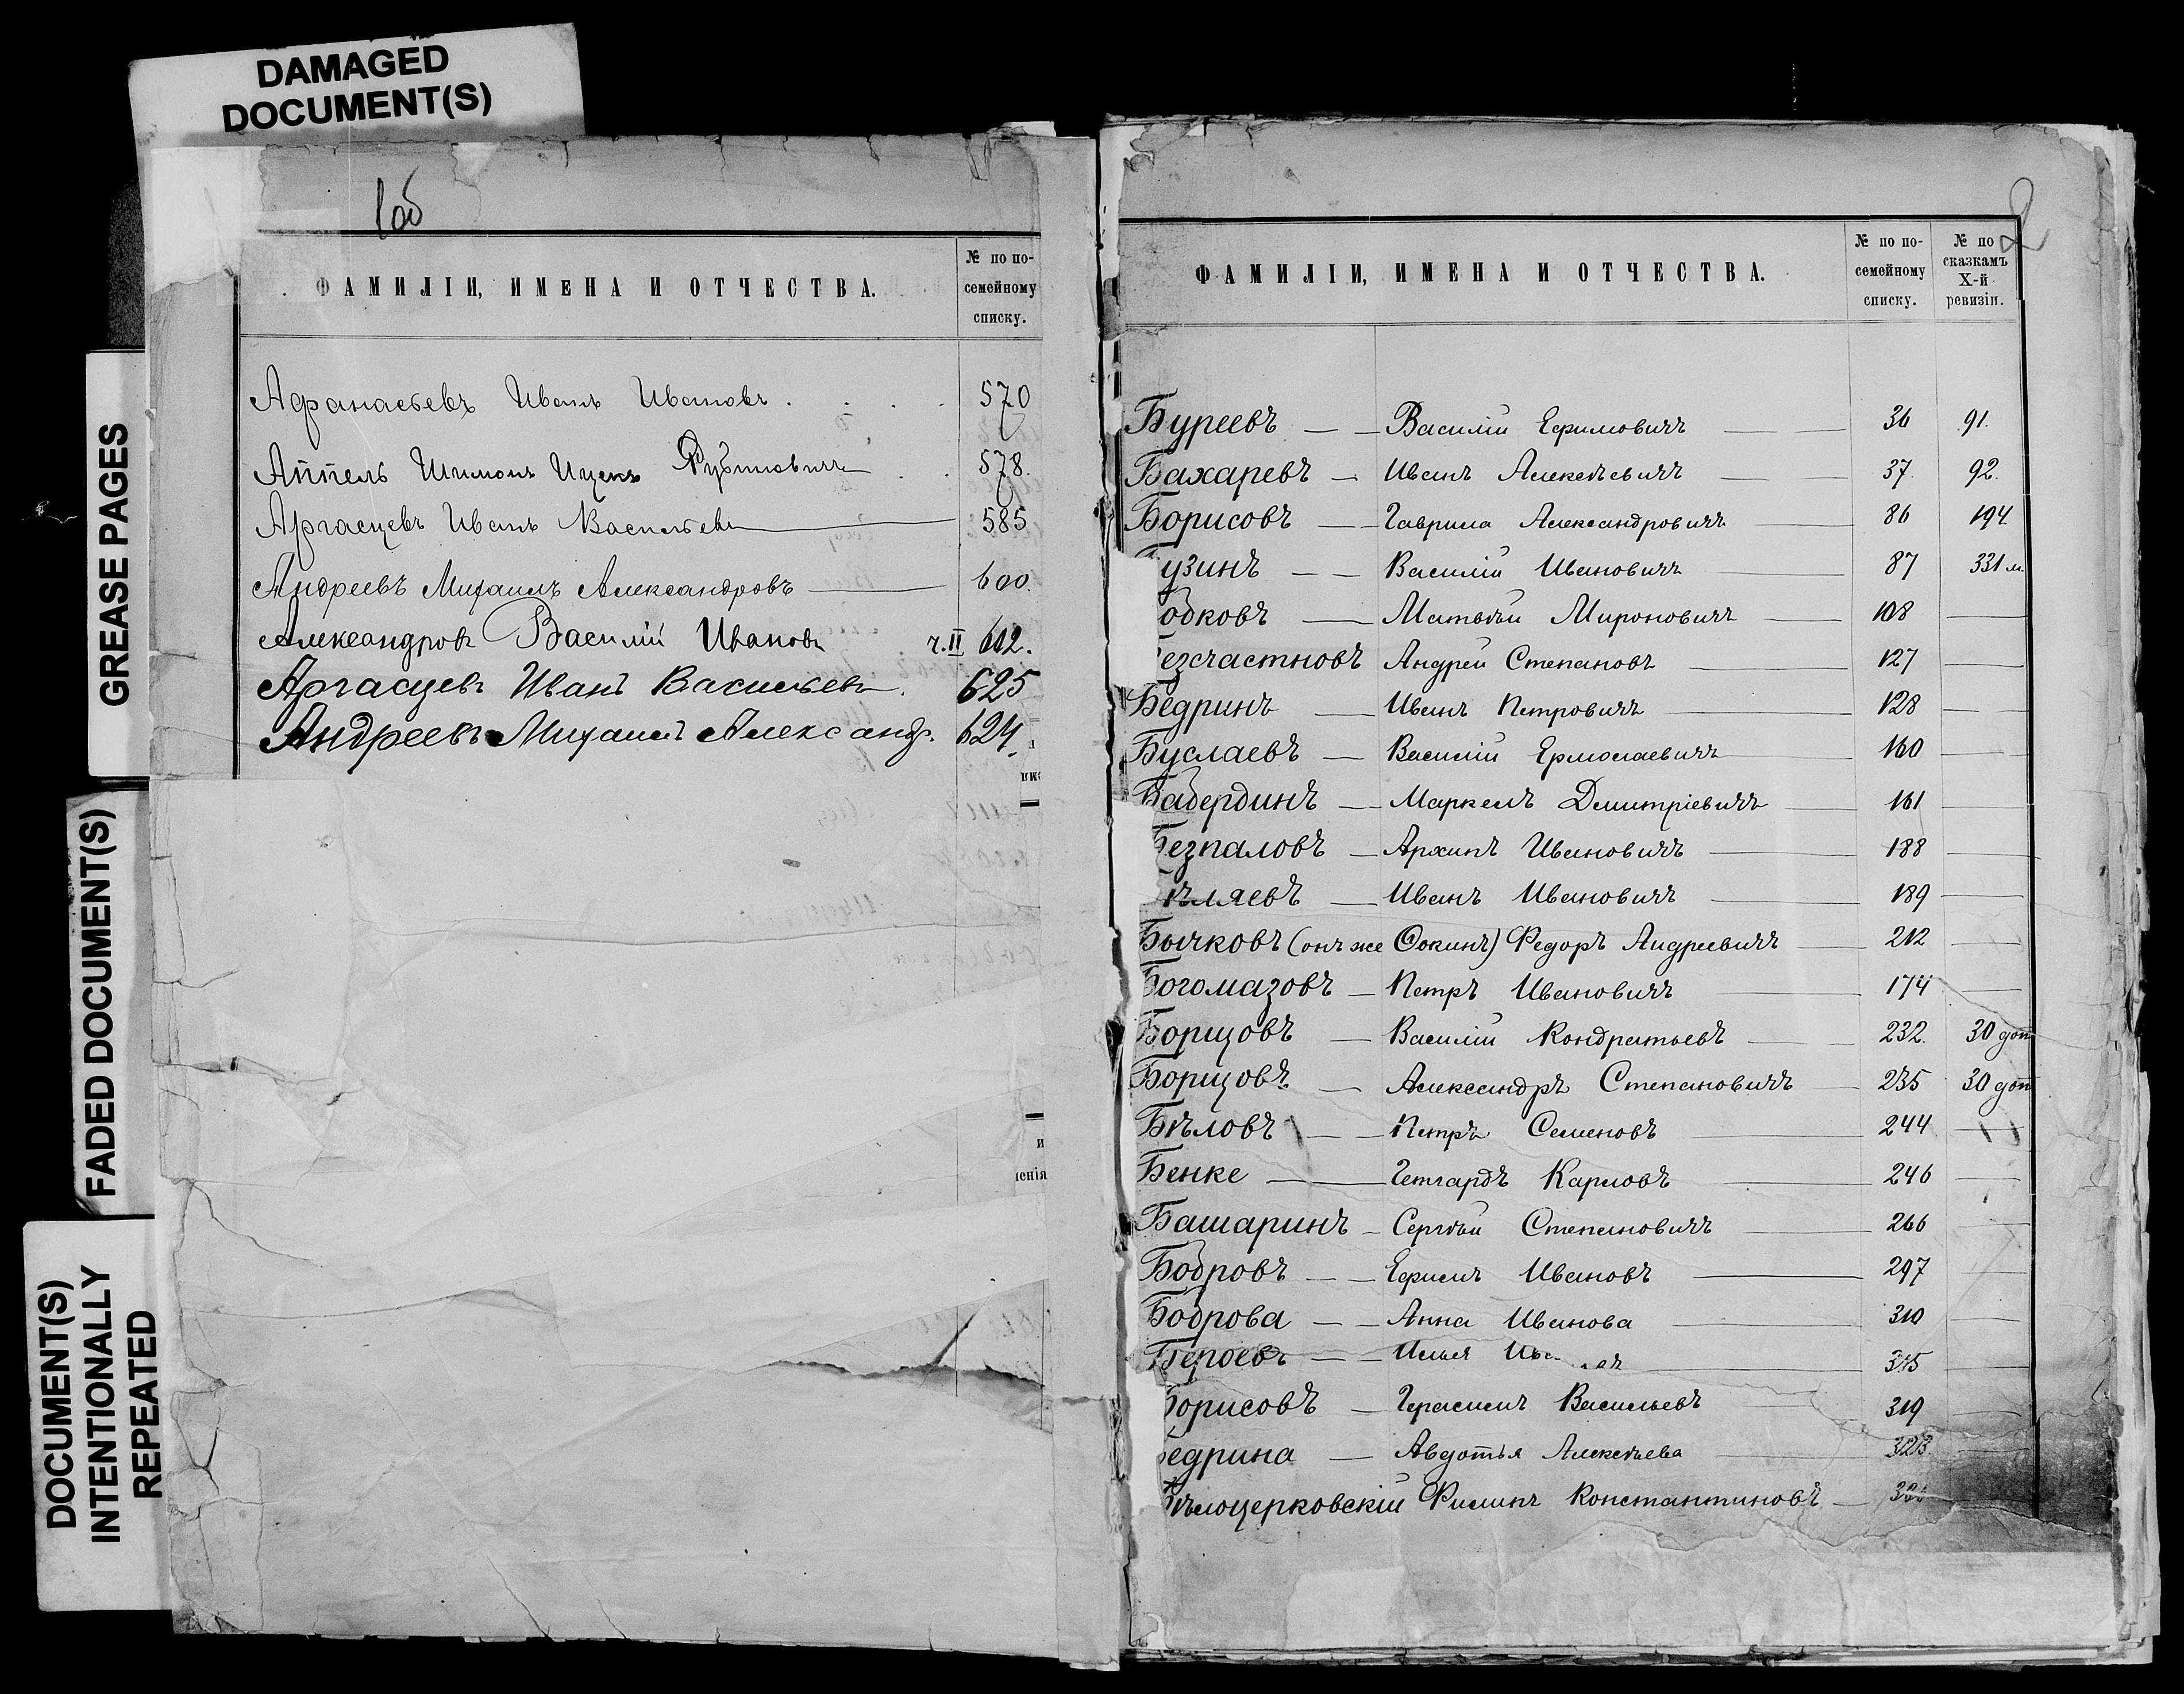 DAMAGED
DOCUMENT(S)
GREASE PAGES
FADED DOCUMENT(S)
DOCUMENT(S)
INTENTIONALLY
REPEATED
1об
ФАМИЛІИ, ИМЕНА И ОТЧЕСТВА.
№ по по-
семейному
списку.
Афанасьевъ Иванъ Ивановъ . . . . 570
Аппель Шимонъ Ицекъ Рубиновичъ . . 578.
Аргасцевъ Иванъ Васильевъ 585
Андреевъ Михаилъ Александровъ 600.
Александровъ Василій Ивановъ ч.II 602.
Аргасцевъ Иванъ Васильевъ. 625
Андреевъ Михаилъ Александр. 624
и
ленія
2
ФАМИЛІИ, ИМЕНА И ОТЧЕСТВА.
№ по по-
семейному
списку.
№ по
сказкамъ
X-й
ревизіи.
Буреевъ — — Василій Ефимовичъ — 36 91.
Бахаревъ — Иванъ Алексѣевичъ — 37. 92.
Борисовъ — Гаврила Александровичъ — 86 194
узинъ — — Василій Ивановичъ — 87 331 м.
одковъ — Матвѣй Мироновичъ — 108 —
езсчастновъ Андрей Степановъ — 127 —
Бедринъ — Иванъ Петровичъ — 128 —
Буслаевъ — Василій Ермолаевичъ — 160 —
Бабердинъ — Маркелъ Дмитріевичъ — 161 —
Безпаловъ — Архипъ Ивановичъ — 188 —
ѣляевъ — Иванъ Ивановичъ — 189 —
Бычковъ (онъ же Фокинъ) Федоръ Андреевичъ — 212 —
Богомазовъ — Петръ Ивановичъ — 174 —
Борцовъ — Василій Кондратьевъ — 232. 30 доп
Борцовъ — Александръ Степановичъ — 235 30 доп
Бѣловъ — Петръ Семеновъ — 244 —
Бенке — Гетгардъ Карловъ — 246 —
Башаринъ — Сергѣй Степановичъ — 266 —
Бобровъ — — Ефимъ Ивановъ — 297 —
Боброва — — Анна Иванова — 310 —
Героевъ — — Илья Ива въ — 315
Борисовъ — Герасимъ Васильевъ — 319 —
едрина — Авдотья Алексѣева — 323. —
Бѣлоцерковскій Филипъ Константиновъ —